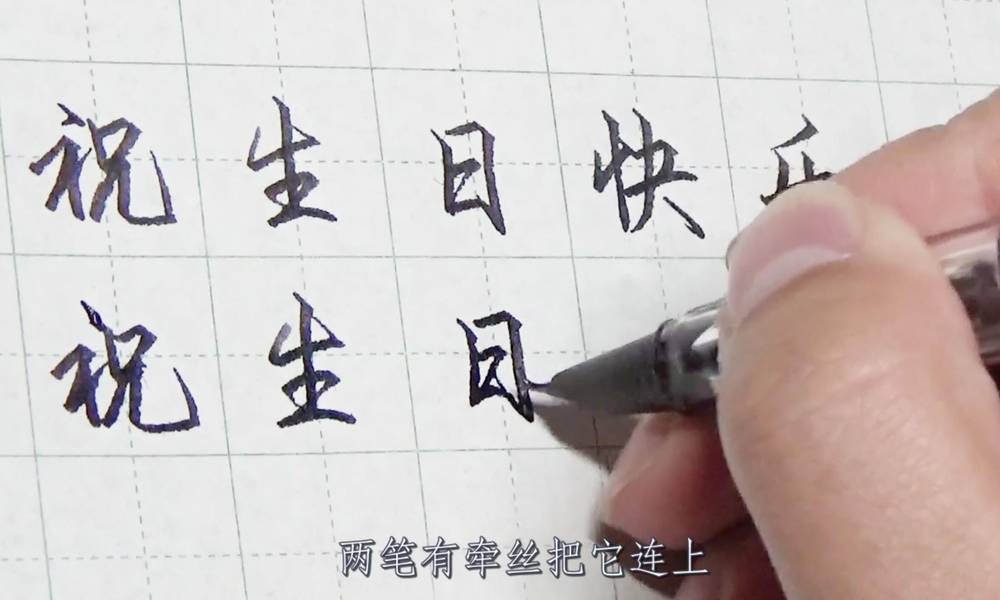 祝生日快乐
祝生日
两笔有牵丝把它连上